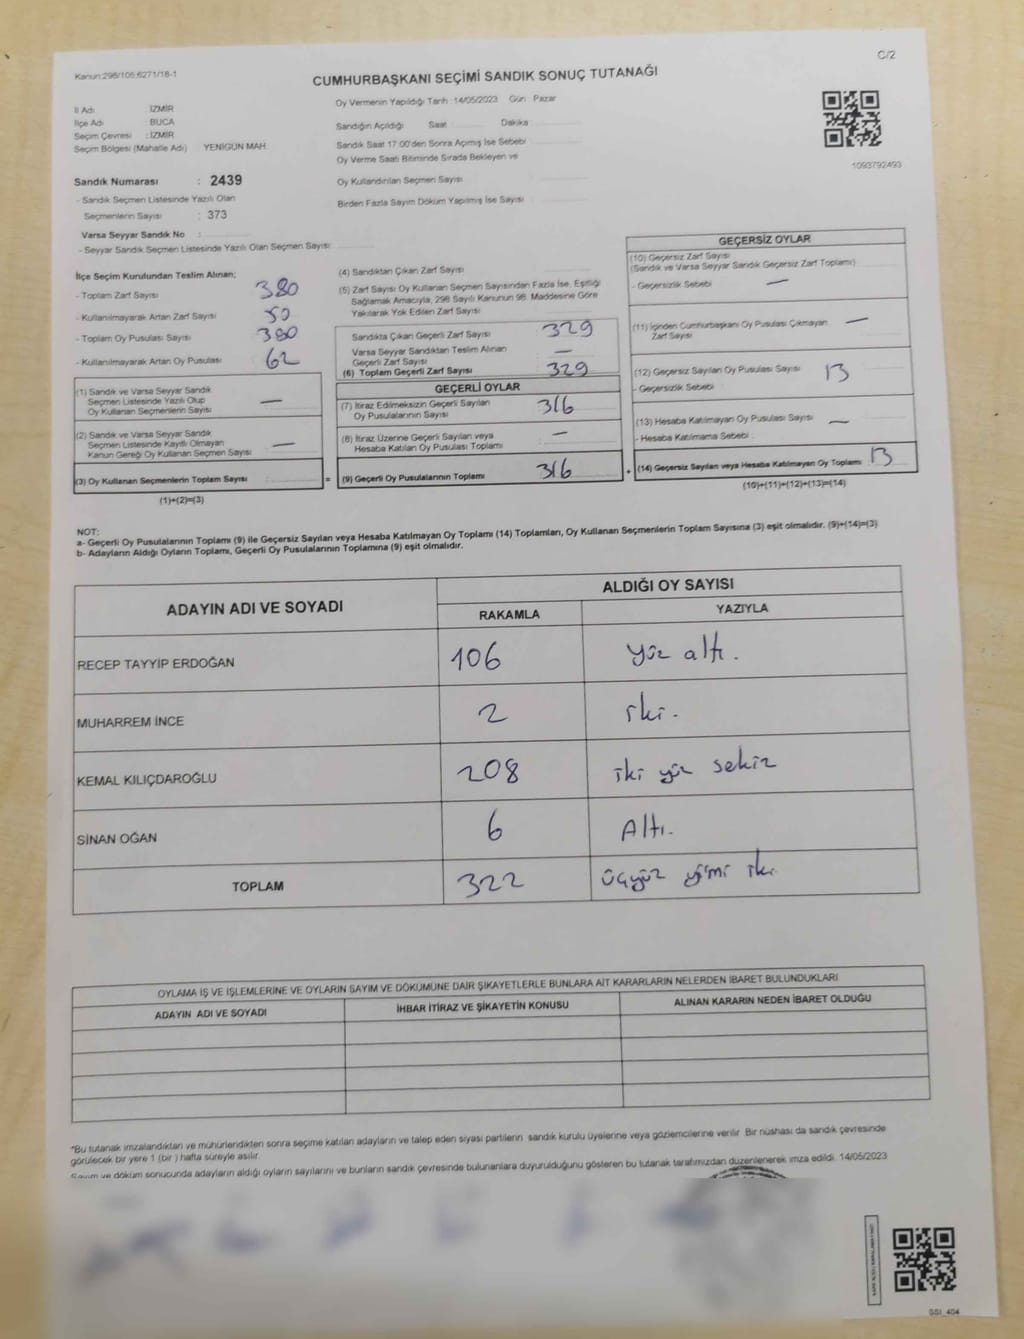 Kanun:298/105,6271/18-1
C/2
CUMHURBAŞKANI SEÇİMİ SANDIK SONUÇ TUTANAĞI
İl Adı : İZMİR
İlçe Adı : BUCA
Seçim Çevresi : İZMİR
Seçim Bölgesi (Mahalle Adı) : YENİGÜN MAH.
Sandık Numarası : 2439
- Sandık Seçmen Listesinde Yazılı Olan
Seçmenlerin Sayısı : 373
Varsa Seyyar Sandık No :
- Seyyar Sandık Seçmen Listesinde Yazılı Olan Seçmen Sayısı
Oy Vermenin Yapıldığı Tarih :14/05/2023 Gün : Pazar
Sandığın Açıldığı Saat Dakika
Sandık Saat 17:00'den Sonra Açımış İse Sebebi
Oy Verme Saati Bitiminde Sırada Bekleyen ve
Oy Kullandırılan Seçmen Sayısı
Birden Fazla Sayım Döküm Yapılmış İse Sayısı
1093792493
İlçe Seçim Kurulundan Teslim Alınan;
- Toplam Zarf Sayısı 380
- Kullanılmayarak Artan Zarf Sayısı 50
- Toplam Oy Pusulası Sayısı 380
- Kullanılmayarak Artan Oy Pusulası 62
(1) Sandık ve Varsa Seyyar Sandık
Seçmen Listesinde Yazılı Olup
Oy Kullanan Seçmenlerin Sayısı —
(2) Sandık ve Varsa Seyyar Sandık
Seçmen Listesinde Kayıtlı Olmayan
Kanun Gereği Oy Kullanan Seçmen Sayısı —
(3) Oy Kullanan Seçmenlerin Toplam Sayısı =
(1)+(2)=(3)
(4) Sandıktan Çıkan Zarf Sayısı
(5) Zarf Sayısı Oy Kullanan Seçmen Sayısından Fazla İse, Eşitliği
Sağlamak Amacıyla, 298 Sayılı Kanunun 98. Maddesine Göre
Yakılarak Yok Edilen Zarf Sayısı
Sandıkta Çıkan Geçerli Zarf Sayısı 329
Varsa Seyyar Sandıktan Teslim Alınan
Geçerli Zarf Sayısı —
(6) Toplam Geçerli Zarf Sayısı 329
GEÇERLİ OYLAR
(7) İtiraz Edilmeksizin Geçerli Sayılan
Oy Pusulalarının Sayısı 316
(8) İtiraz Üzerine Geçerli Sayılan veya
Hesaba Katılan Oy Pusulası Toplamı —
(9) Geçerli Oy Pusulalarının Toplamı 316 +
GEÇERSİZ OYLAR
(10) Geçersiz Zarf Sayısı
(Sandık ve Varsa Seyyar Sandık Geçersiz Zarf Toplamı)
- Geçersizlik Sebebi —
(11) İçinden Cumhurbaşkanı Oy Pusulası Çıkmayan
Zarf Sayısı —
(12) Geçersiz Sayılan Oy Pusulası Sayısı 13
- Geçersizlik Sebebi
(13) Hesaba Katılmayan Oy Pusulası Sayısı —
- Hesaba Katılmama Sebebi
(14) Geçersiz Sayılan veya Hesaba Katılmayan Oy Toplamı 13
(10)+(11)+(12)+(13)=(14)
NOT:
a- Geçerli Oy Pusulalarının Toplamı (9) ile Geçersiz Sayılan veya Hesaba Katılmayan Oy Toplamı (14) Toplamları, Oy Kullanan Seçmenlerin Toplam Sayısına (3) eşit olmalıdır. (9)+(14)=(3)
b- Adayların Aldığı Oyların Toplamı, Geçerli Oy Pusulalarının Toplamına (9) eşit olmalıdır.
ADAYIN ADI VE SOYADI
ALDIĞI OY SAYISI
RAKAMLA YAZIYLA
RECEP TAYYİP ERDOĞAN 106 yüz altı.
MUHARREM İNCE 2 iki.
KEMAL KILIÇDAROĞLU 208 iki yüz sekiz
SİNAN OĞAN 6 Altı.
TOPLAM 322 üçyüz yirmi iki
OYLAMA İŞ VE İŞLEMLERİNE VE OYLARIN SAYIM VE DÖKÜMÜNE DAİR ŞİKAYETLERLE BUNLARA AİT KARARLARIN NELERDEN İBARET BULUNDUKLARI
ADAYIN ADI VE SOYADI İHBAR İTİRAZ VE ŞİKAYETİN KONUSU ALINAN KARARIN NEDEN İBARET OLDUĞU
*Bu tutanak imzalandıktan ve mühürlendikten sonra seçime katılan adayların ve talep eden siyasi partilerin sandık kurulu üyelerine veya gözlemcilerine verilir. Bir nüshası da sandık çevresinde
görülecek bir yere 1 (bir ) hafta süreyle asılır.
Sayım ve döküm sonucunda adayların aldığı oyların sayılarını ve bunların sandık çevresinde bulunanlara duyurulduğunu gösteren bu tutanak tarafımızdan düzenlenerek imza edildi. 14/05/2023
SSI_404